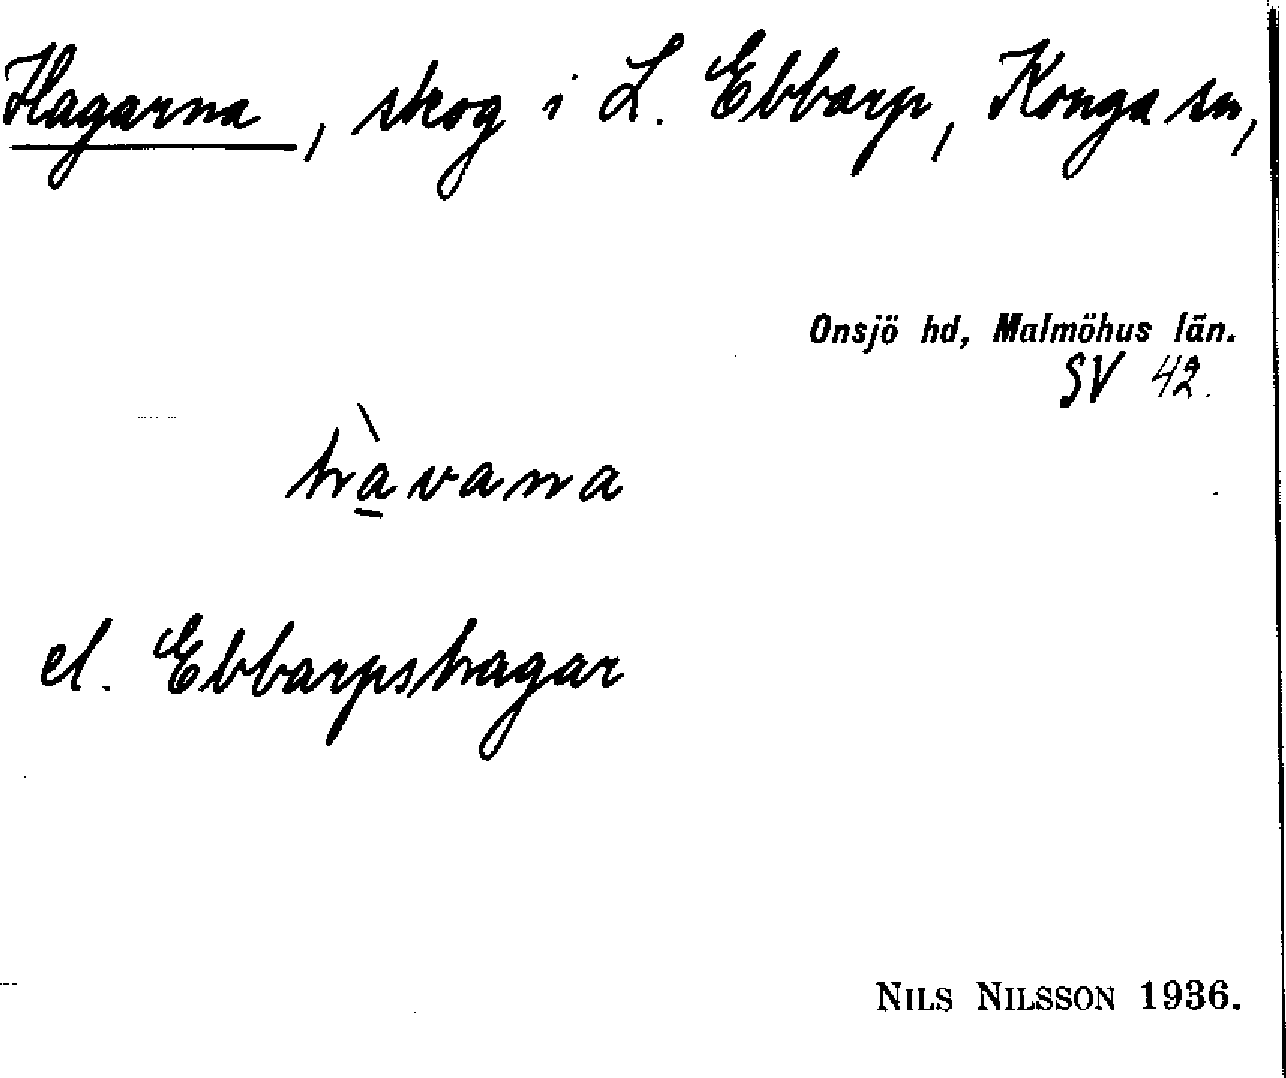 Hagarna, skog i L. Ebbarp, Konga sn,
Onsjö hd, Malmöhus län.
SV 42.
hàvana
el. Ebbarpshagar
NILS NILSSON 1936.